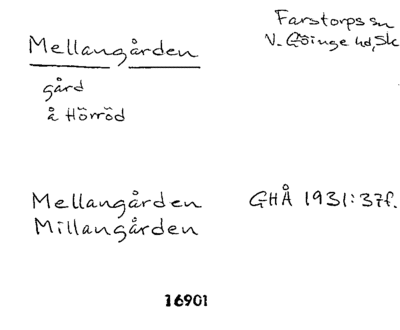 Farstorps sn
Mellangården V. Göinge hd, Sk
gård
å Hörröd
Mellangården GHÅ 1931:37f.
Millangården
16901